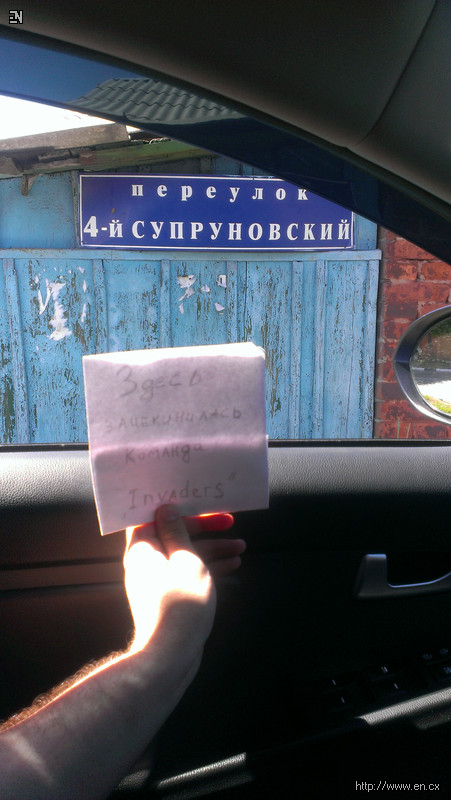 EN
переулок
4-й СУПРУНОВСКИЙ
Здесь
зачекинилась
команда
"Invaders"
http://www.en.cx